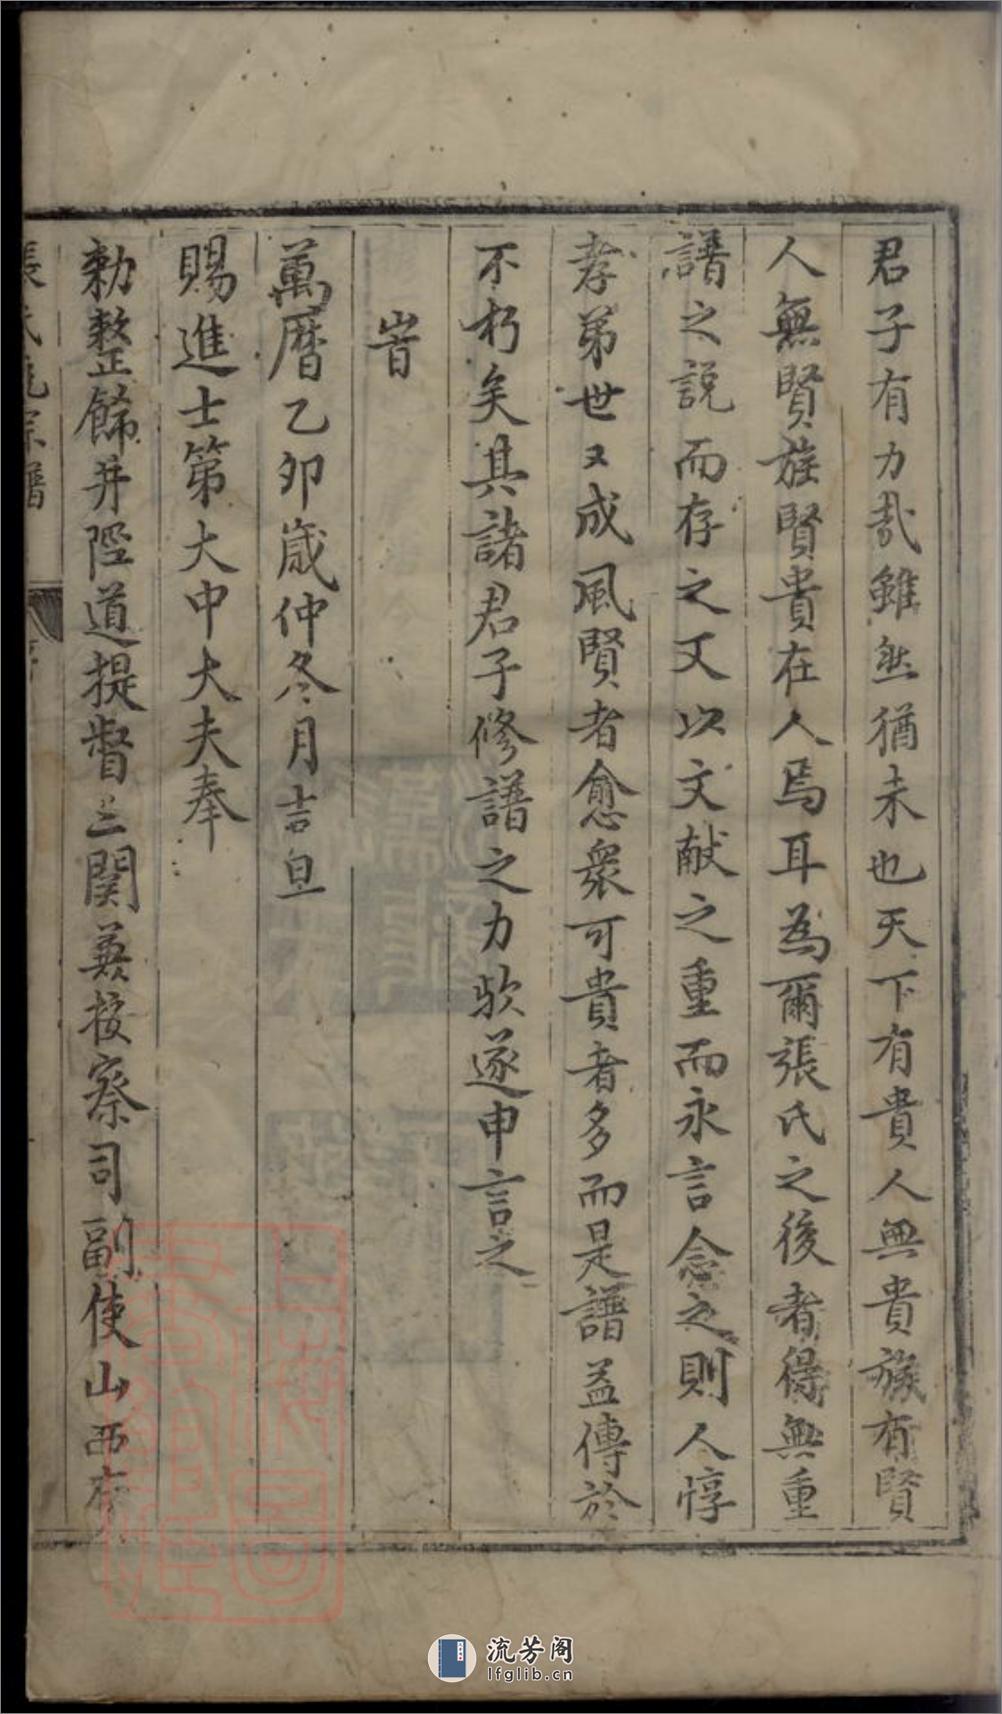 君子有力哉雖然猶未也天下有貴人無貴族有賢
人無賢族賢貴在人焉耳為爾張氏之後者得無重
譜之說而存之又以文献之重而永言念之則人惇
孝弟世又成風賢者愈衆可貴者多而是譜益傳於
不朽矣其諸君子修譜之力欤遂申言之
旹
萬曆乙夘歲仲冬月吉旦
賜進士第大中大夫奉
勅整餙井陘道提督三関兼按察司副使山西右
張氏統宗譜
流芳阁
lfglib.cn